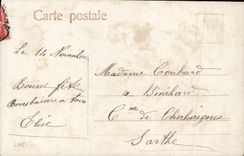 Carte postale
Le 14 Novembre
Bonne fête
Elise
Madame Couhard
à Bénéhard
Cne de Chahaignes
Sarthe